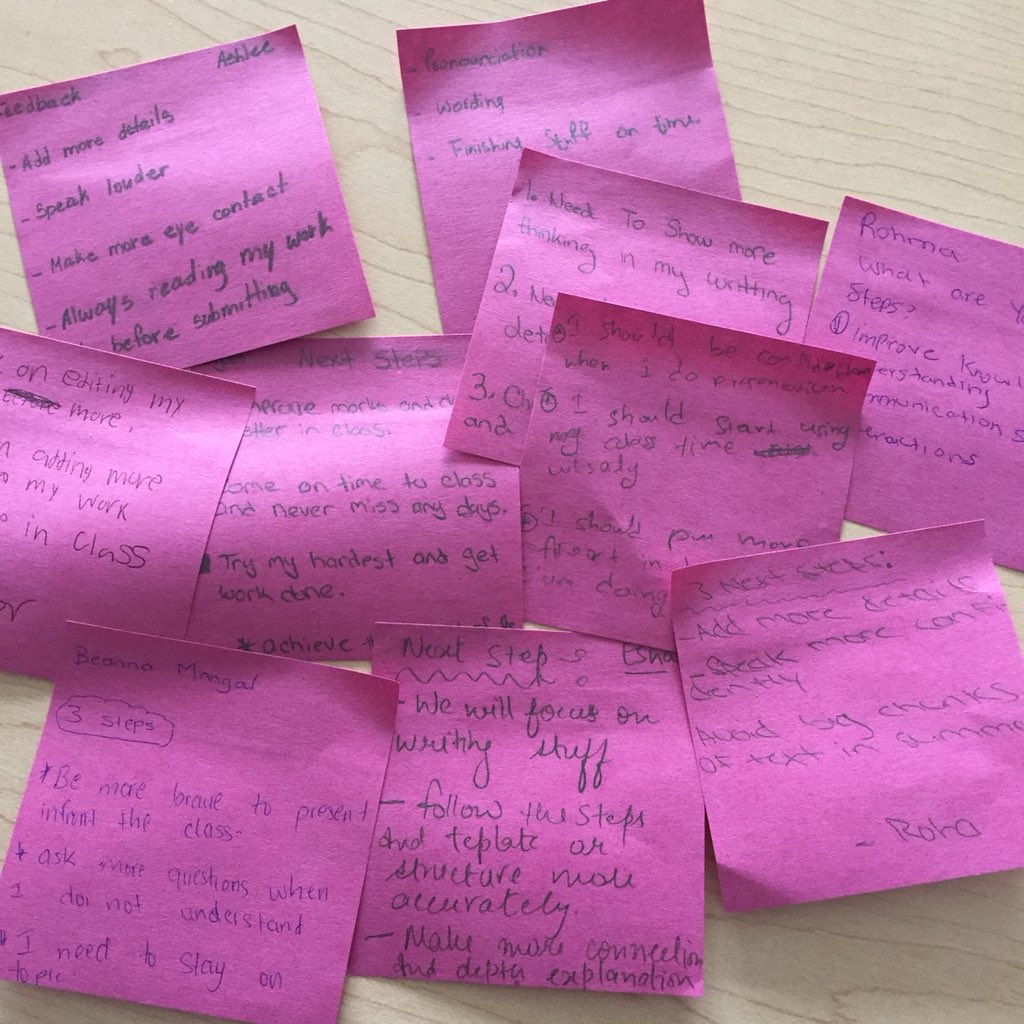 Ashlee
Feedback
- Add more details
- Speak louder
- Make more eye contact
- Always reading my work
before submitting
- Pronounciation
- wording
- Finishing stuff on time
1. Need To Show more
thinking in my writting
2. Ne
det
3. Ch
and
Rohma
what are Y
Steps?
① Improve Knowl
erstanding
mmunication s
eractions
on editing my
more.
n adding more
my work
in Class
or
Next Steps
marks and d
etter in class.
ome on time to class
and never miss any days.
Try my hardest and get
work done.
* achieve *
I should be
when I do presentation
I should start using
my class time
wisaly
I should put more
in
am doing
3 Next Steps:
- Add more details
- Speak more confi-
dently
Avoid big chunks
of text in summa
- Roha
Beanna Mangal
3 steps
* Be more brave to present
infront the class-
* ask more questions when
I doi not understand
* I need to stay on
topic.
Next Step : Esha
- We will focus on
writing stuff
- follow the steps
and teplate or
structure more
accurately.
- Make more connection
and depth explanation